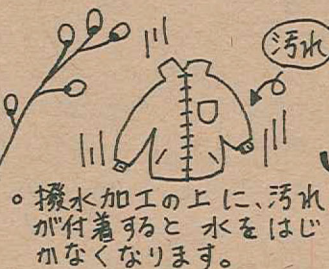 汚れ
。撥水加工の上に、汚れ
が付着すると 水をはじ
かなくなります。